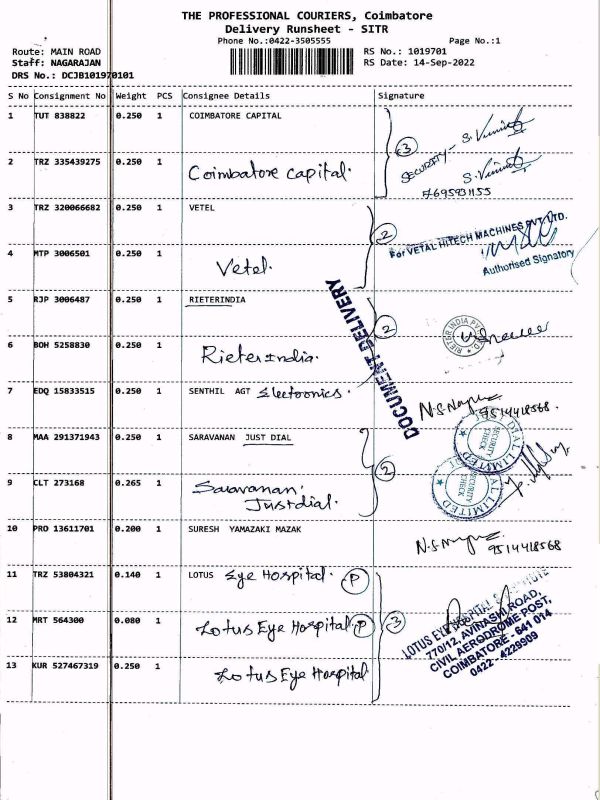 THE PROFESSIONAL COURIERS, Coimbatore
Delivery Runsheet - SITR
Phone No.:0422-3505555 Page No.:1
Route: MAIN ROAD RS No.: 1019701
Staff: NAGARAJAN RS Date: 14-Sep-2022
DRS No.: DCJB101970101
S No Consignment No Weight PCS Consignee Details Signature
1 TUT 838822 0.250 1 COIMBATORE CAPITAL
3 SECURITY-
2 TRZ 335439275 0.250 1 Coimbatore capital.
7695931155
3 TRZ 320066682 0.250 1 VETEL
2 For VETAL HITECH MACHINES PVT. LTD.
4 MTP 3006501 0.250 1 Vetel.
Authorised Signatory
DOCUMENT DELIVERY
5 RJP 3006487 0.250 1 RIETERINDIA
2 RIETER INDIA
6 BOH 5258830 0.250 1 Rieter India.
7 EDQ 15833515 0.250 1 SENTHIL AGT Electronics.
9514418568.
8 MAA 291371943 0.250 1 SARAVANAN JUST DIAL
DIAL LIMITED
SECURITY CHECK
2
9 CLT 273168 0.265 1 Saravanan.
Justdial.
SECURITY CHECK
10 PRO 13611701 0.200 1 SURESH YAMAZAKI MAZAK
9514418568
11 TRZ 53804321 0.140 1 LOTUS Eye Hospital. P
12 MRT 564300 0.080 1 Lotus Eye Hospital. P
3
13 KUR 527467319 0.250 1 Lotus Eye Hospital
LOTUS EYE HOSPITAL & INSTITUTE
770/12, AVINASHI ROAD,
CIVIL AERODROME POST,
COIMBATORE - 641 014
0422 - 4229909